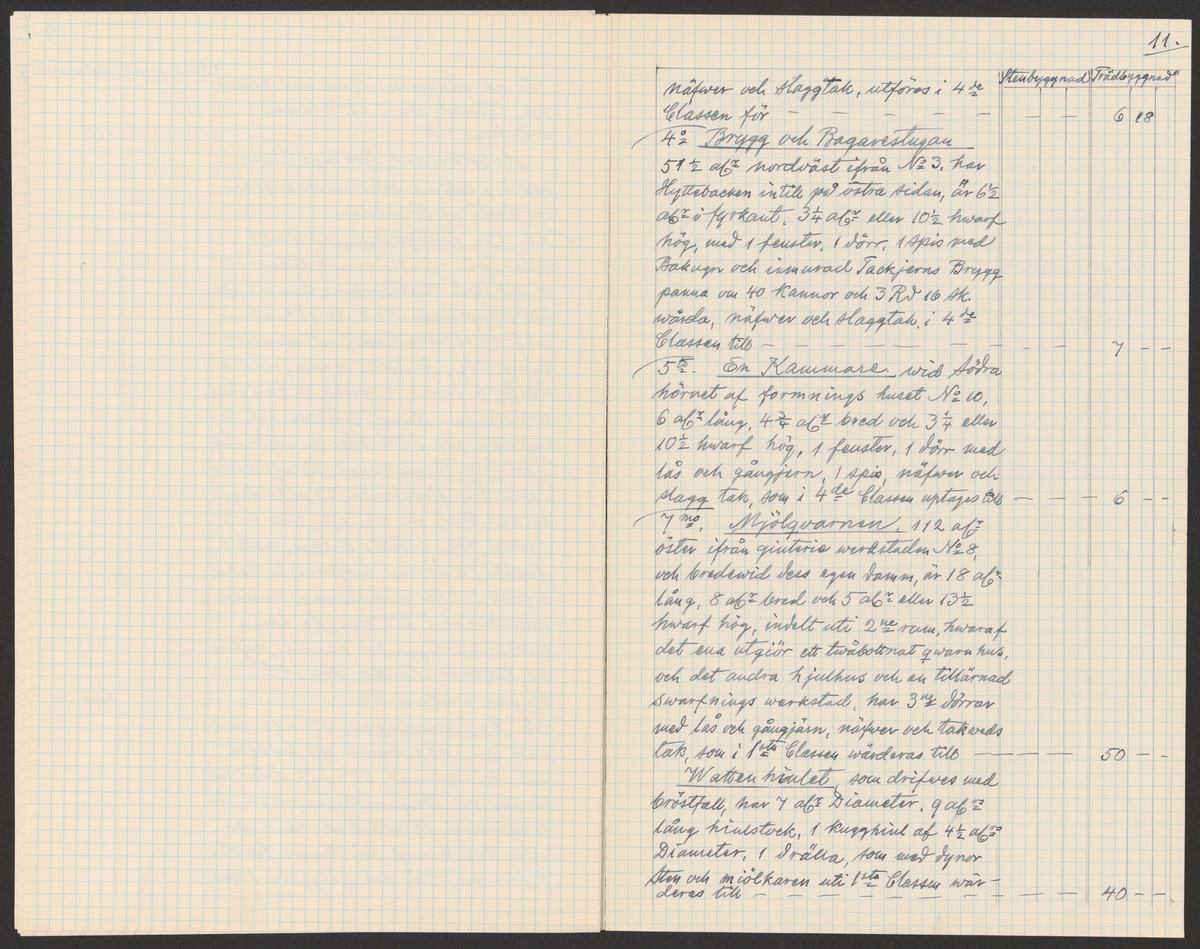 11.
Stenbyggnad Trädbyggnad
näfwer och slaggtak, utföres i 4de
Classen för — — — — — — — — 6 18
4o Brygg och Bagarestugan
51 1/2 alnr nordväst ifrån No 3. har
Hyttebacken intill på östra sidan, är 6 1/2
alnr i fyrkant. 3 1/4 alnr eller 10 1/2 hwarf
hög, med 1 fenster, 1 dörr, 1 spis med
Bakugn och inmurad Tackjerns Brygg
panna om 40 Kannor och 3 Rd 16 sk.
wärda, näfwer och slaggtak, i 4de
Classen till — — — — — — — — 7 — —
5to. En Kammare wid södra
hörnet af formnings huset No 10,
6 alnr lång, 4 3/4 alnr bred och 3 1/4 eller
10 1/2 hwarf hög, 1 fenster, 1 dörr med
lås och gångjern, 1 spis, näfwer och
slagg tak, som i 4de Classen uptages till — — — — 6 — —
7mo. Mjölqvarnen. 112 alnr
öster ifrån giuterie werkstaden No 8,
och bredewid dess egen damm, är 18 alnr
lång, 8 alnr bred och 5 alnr eller 13 1/2
hwarf hög, indelt uti 2ne rum, hwaraf
det ena utgiör ett twåbottnat qwarn hus,
och det andra hjulhus och en tillärnad
swarfnings werkstad, har 3ne dörrar
med lås och gångjärn, näfwer och takweds
tak, som i 1sta Classen wärderas till — — — — 50 — —
Watten hiulet, som drifwes med
bröstfall, har 7 alnr Diameter, 9 alnrs
lång hiulstock, 1 kugghiul af 4 1/2 alnrs
Diameter, 1 drälla, som med dynor
Sten och miölkaren uti 1sta Classen wär-
deras till — — — — — — — — 40 — —